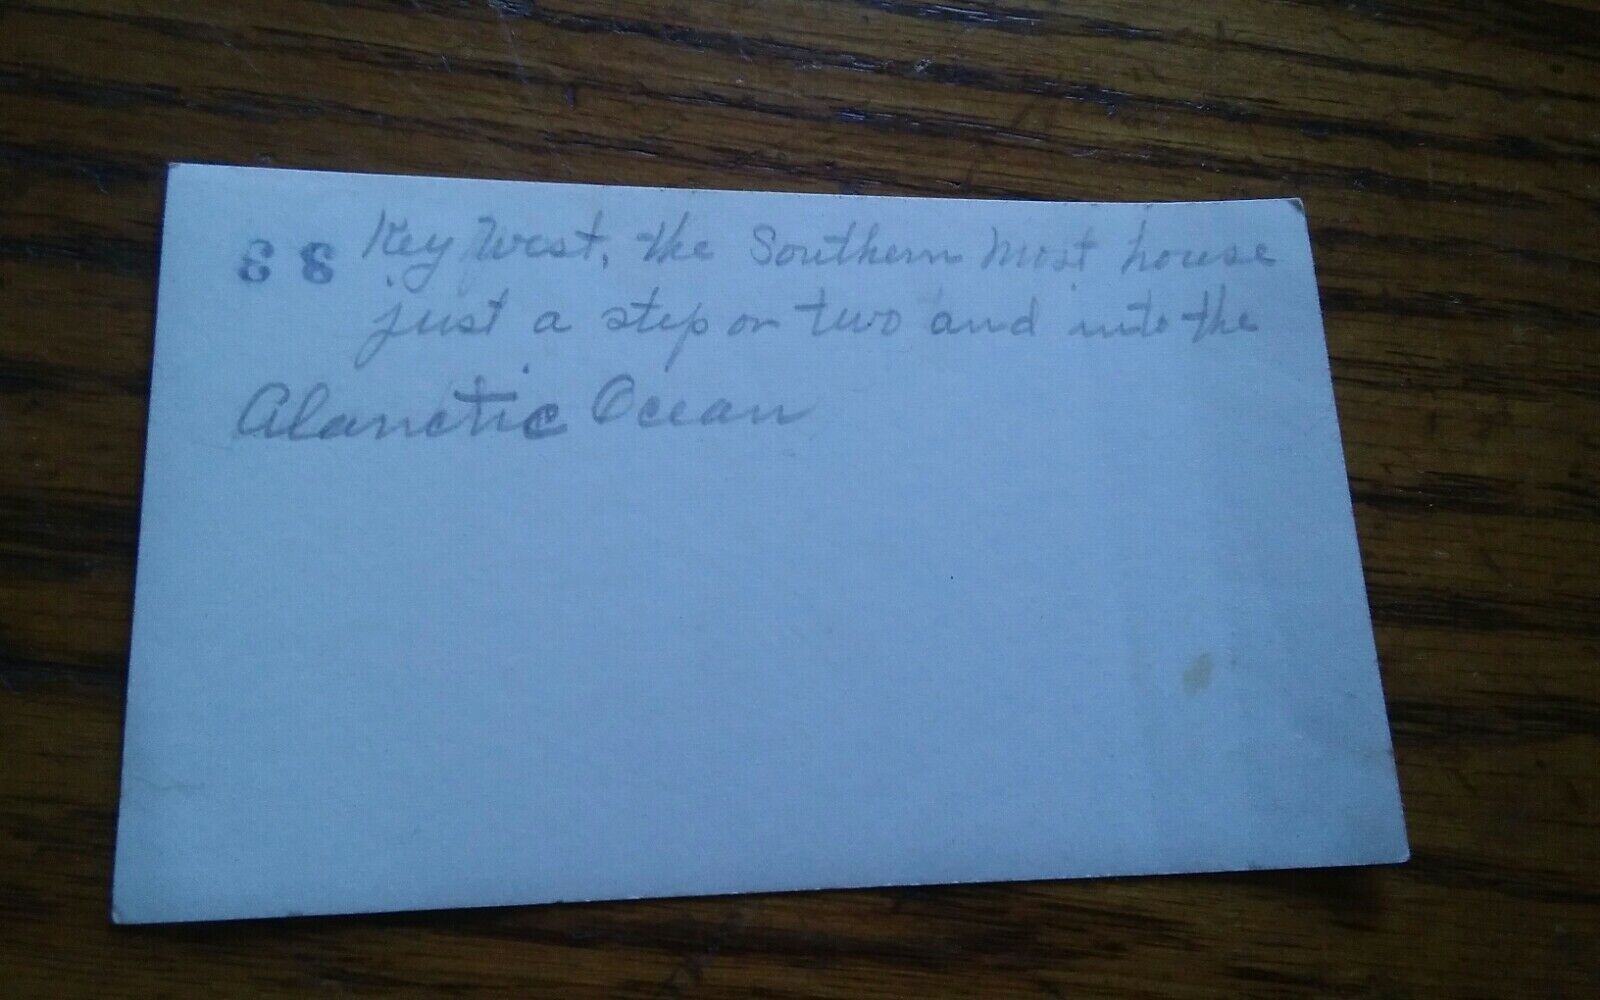 33 Key West, the Southern Most house
just a step or two and into the
Alanctic Ocean